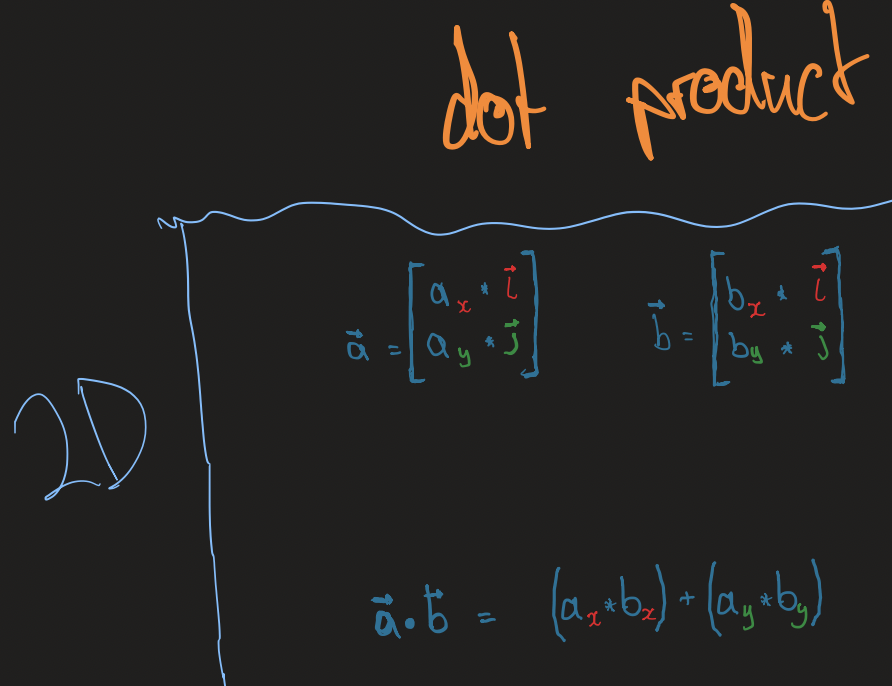 dot product
a⃗ = [ a_x * i⃗
a_y * j⃗ ]
b⃗ = [ b_x * i⃗
b_y * j⃗ ]
2D
a⃗ • b⃗ = (a_x * b_x) + (a_y * b_y)